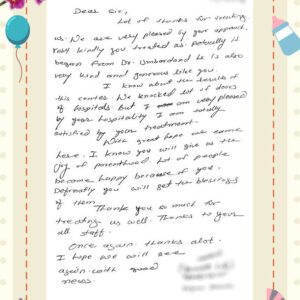 Dear Sir,
Lot of thanks for treating
us. We are very pleased by your approach,
very kindly you treated us. Actually it
began from Dr. Umbardand he is also
very kind and generous like you.
I know about the results of
this center. We knocked lot of doors
of hospitals but I am very pleased
by your hospitality I am totally
satisfied by your treatment.
With great hope we came
here. I know you will give us the
joy of parenthood. Lot of people
became happy because of you.
Definatly you will get the blessings
of them.
Thank you so much for
treating us well. Thanks to your
all staff.
Once again thanks alot.
I hope we will see
again with good
news.